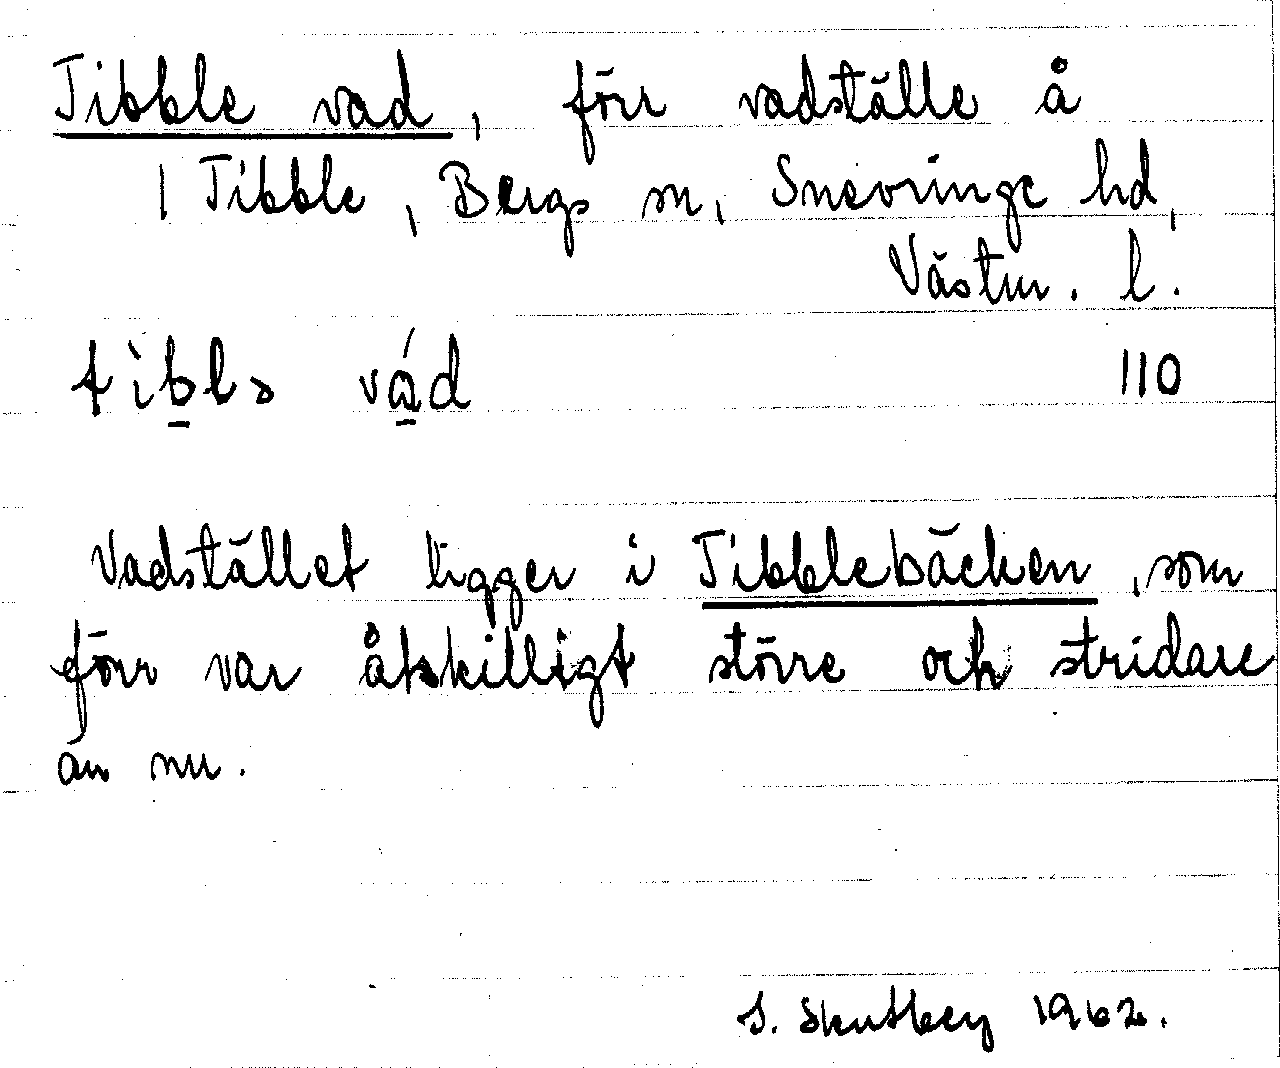 Tibble vad, förr vadställe å
1 Tibble, Bergs sn, Snevringe hd,
Västm. l.
tìblə vá̱d 110
Vadstället ligger i Tibblebäcken, som
förr var åtskilligt större och stridare
än nu.
S. Skutberg 1962.